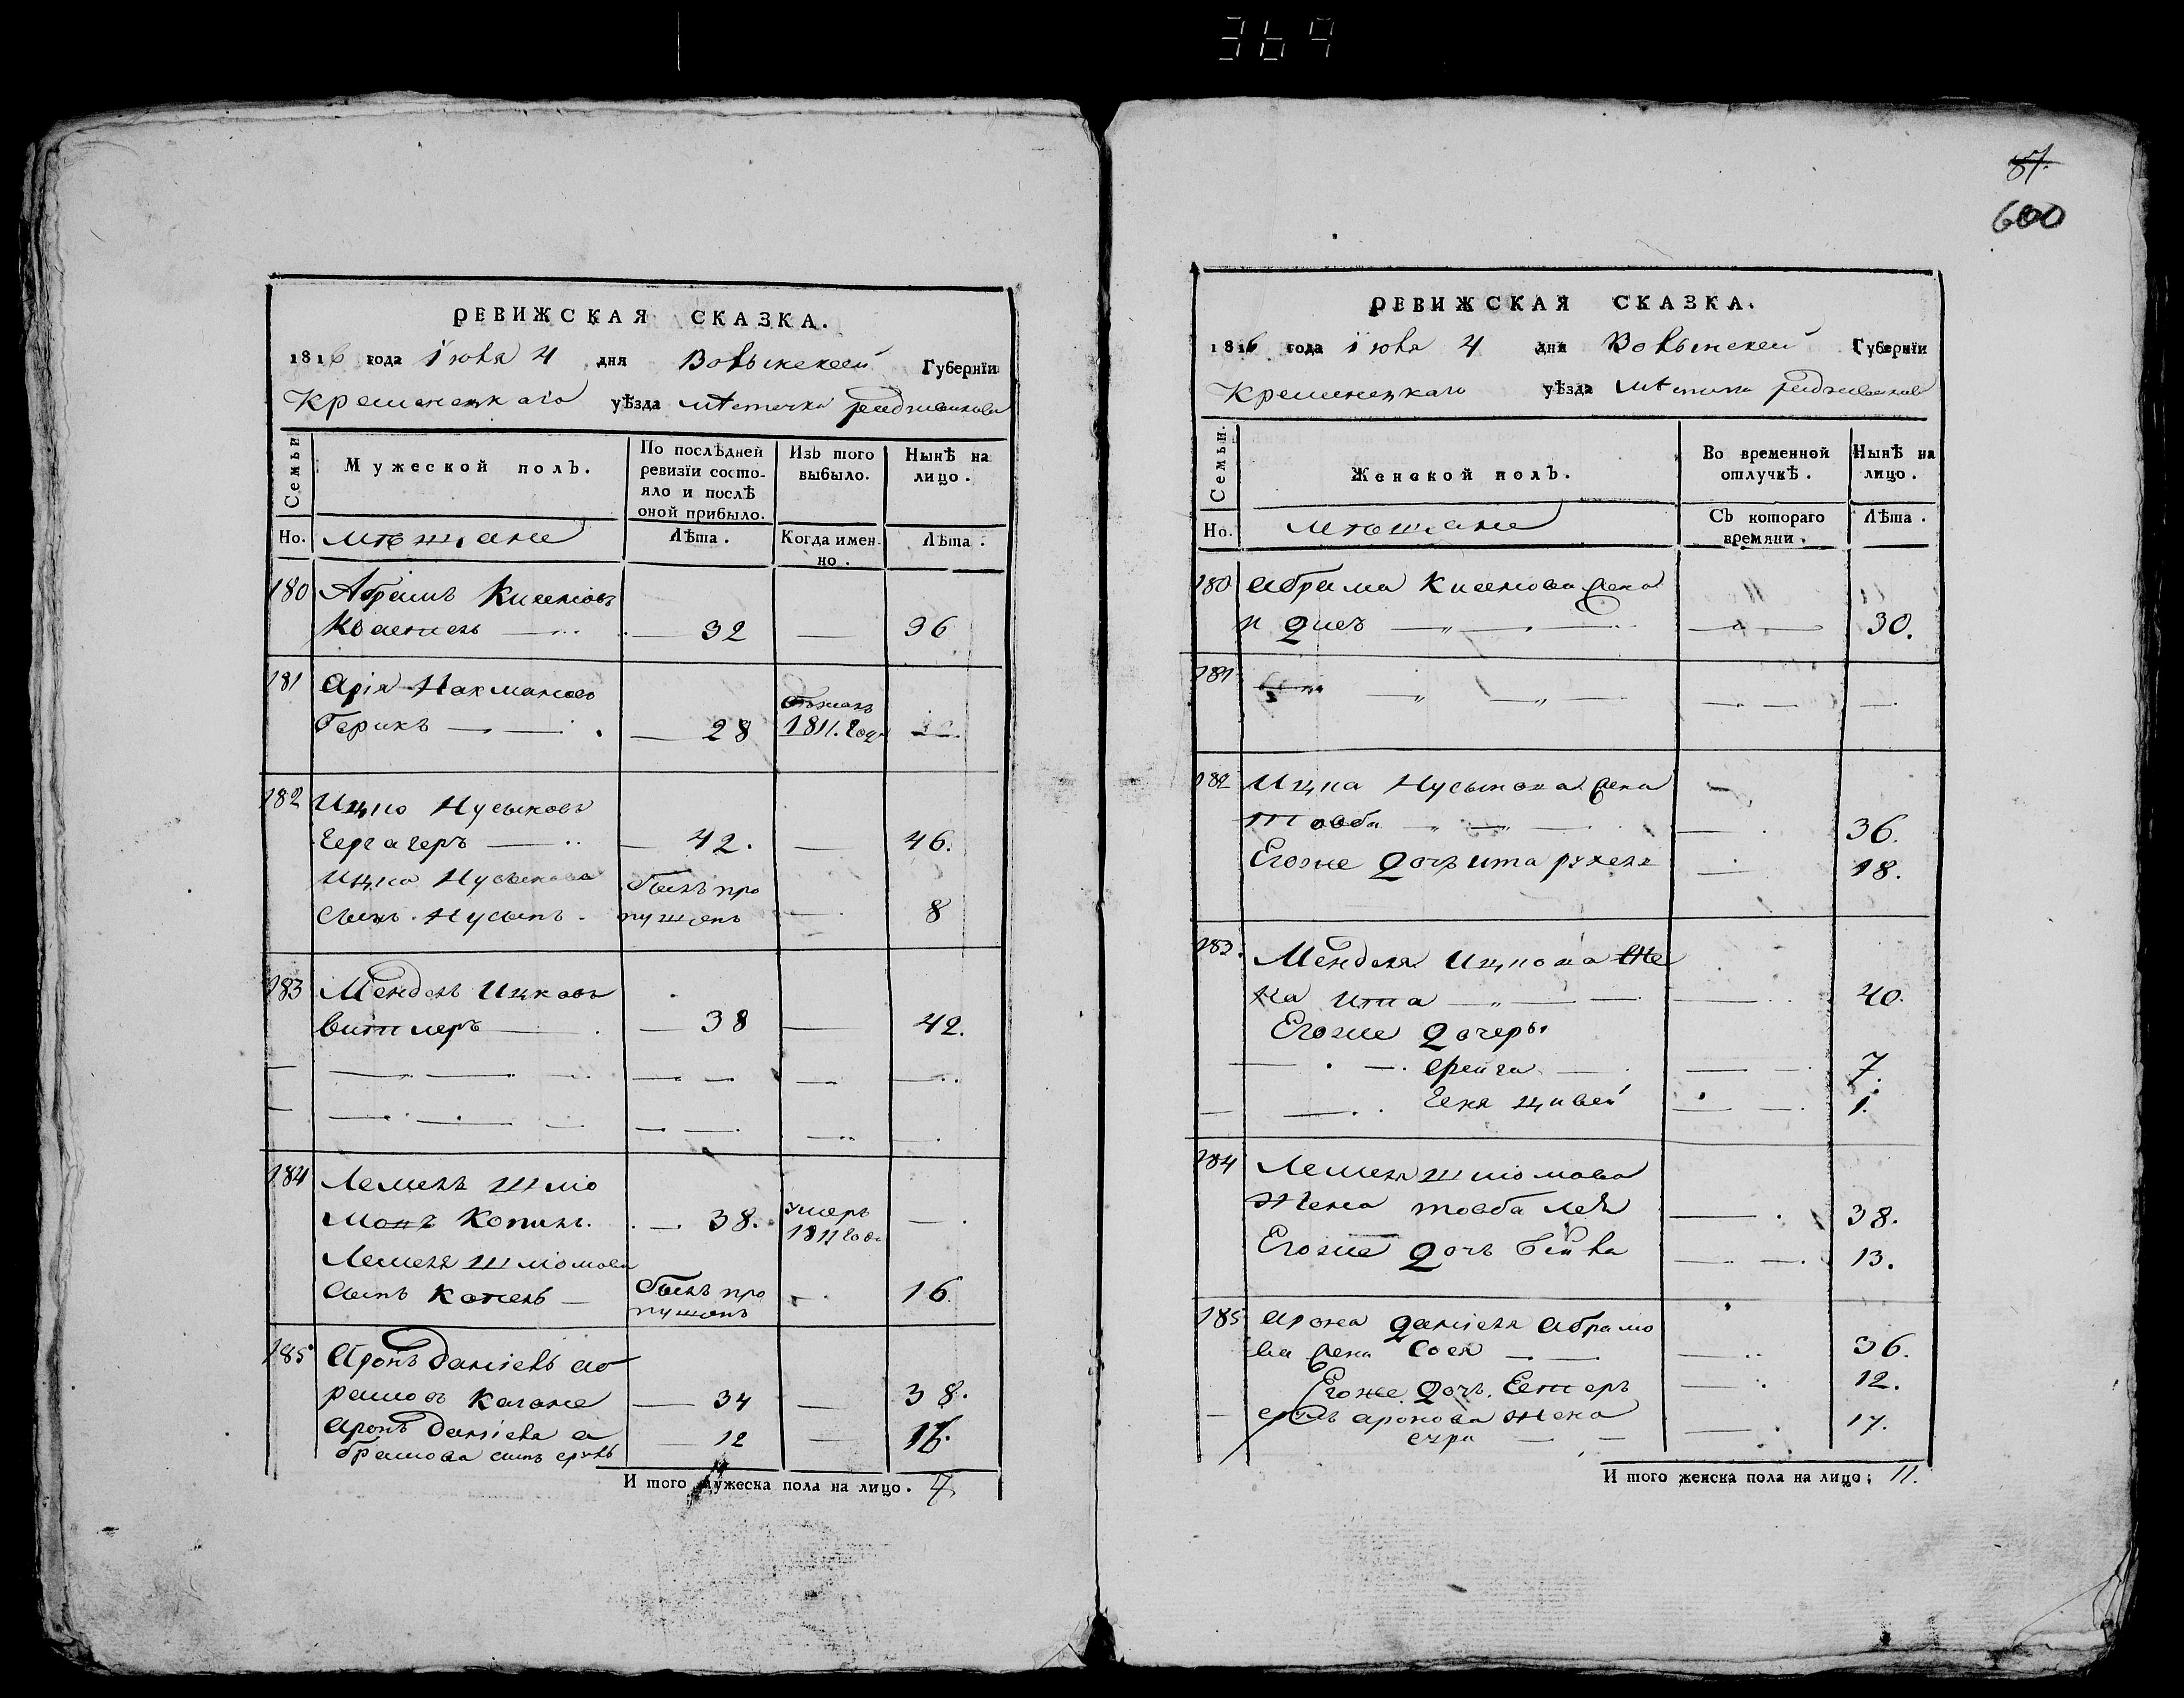 369
87.
600
РЕВИЖСКАЯ СКАЗКА.
1816 года iюля 4 дня Волынской Губернїи
Кременецкаго уѣзда мѣстечка радзивилова
Семьи
Мужеской полъ.
По послѣдней ревизїи состояло и послѣ оной прибыло.
Изъ того выбыло.
Нынѣ на лицо.
Но. мѣщане
Лѣта.
Когда именно.
Лѣта.
180 Абрамъ
— 32 — 36
181 Арiя Нахмановъ
Герикъ — — 28
1811. года
182 Ицко Нусыновъ
— 42. — 46.
Ицка Нусынова былъ про
сынъ Нусынъ - пущенъ — 8
183 Мендель Ицковъ
— 38 — 42.
184 Лемель Шлiо
мовъ — 38. умеръ
1811 года
Лемеля Шлiомова
сынъ былъ про
пущенъ — 16.
185 Аронъ Данiель аб
рамовъ Кагане — 34 — 38.
Аронъ Данiеля а — 12 — 16.
брамова сынъ
И того мужеска пола на лицо. 7
РЕВИЖСКАЯ СКАЗКА.
1816 года iюля 4 дня Волынской Губернїи
Кременецкаго уѣзда мѣстечка радзивилова
Семьи.
Женской полъ.
Во временной отлучкѣ.
Нынѣ на лицо.
Но. мѣщане
Съ котораго времяни.
Лѣта.
180 Абрама жена
— 30.
181 — — —
182 Ицка Нусынова жена
товба — — 36.
Егоже дочь ита рухля — 18.
183. Менделя Ицкова же
на ита — — 40.
Егоже дочеры
фейга — 7.
ценя цивей — 1.
184 Лемеля шлiомова
жена товба лея — 38.
Егоже дочь бейла — 13.
185 Арона данiеля абрамо
ва жена сося — — 36.
Егоже дочь Естеръ — 12.
аронова жена — 17.
И того женска пола на лицо; 11.